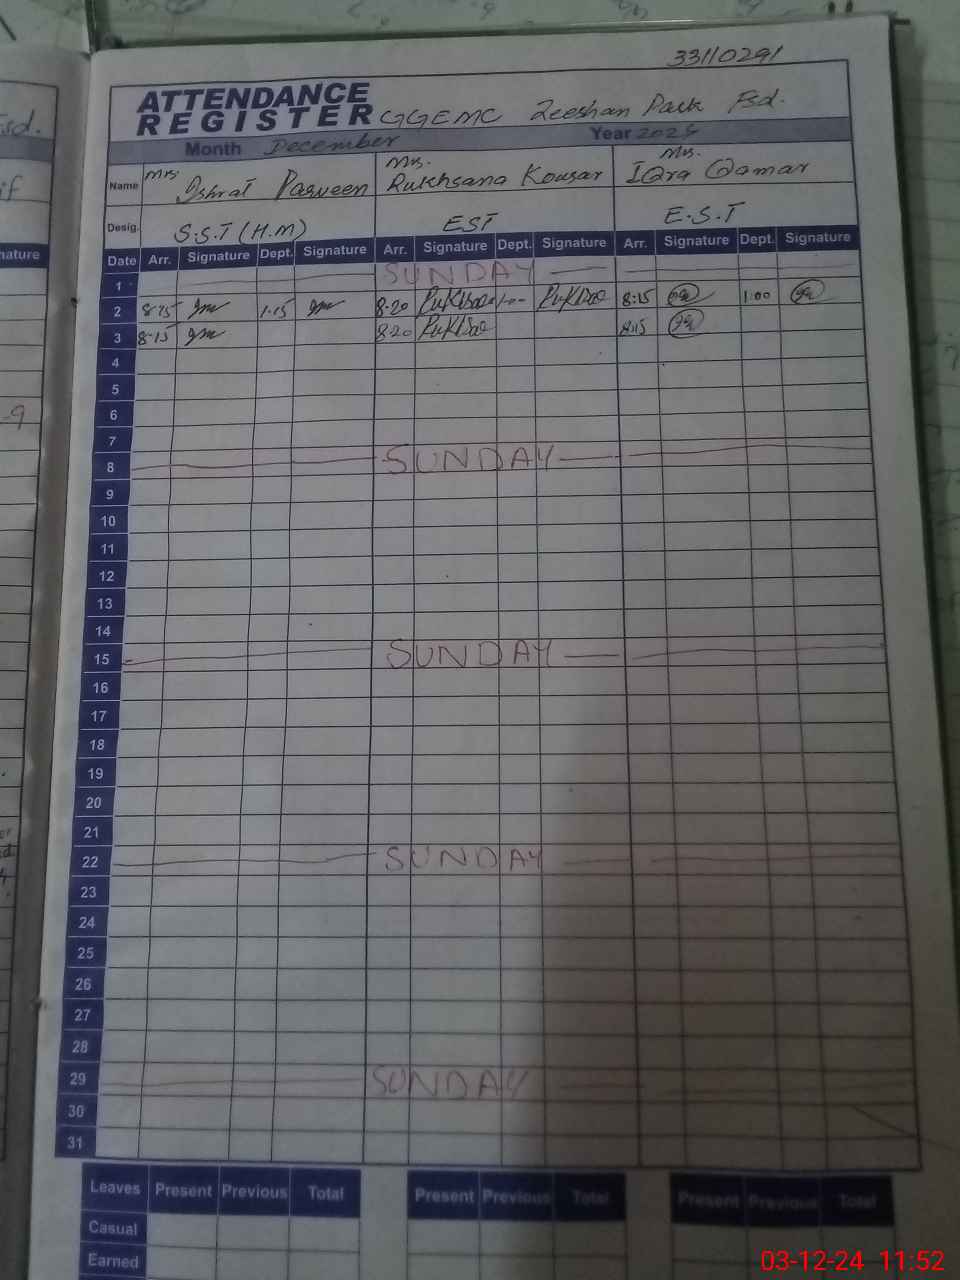 33110291
sd.
ATTENDANCE
REGISTER GGEMC Zeeshan Park Fsd.
Month December Year 2024
if
Name Mrs. Ishrat Parveen Mrs. Rukhsana Kousar Mrs. IQra Qamar
Desig. S.S.T (H.M) EST E.S.T
nature
Date Arr. Signature Dept. Signature Arr. Signature Dept. Signature Arr. Signature Dept. Signature
1 SUNDAY
2 8:15 1.15 8.20 1:00 8:15 1:00
3 8.15 8.20 8:15
4
5
6
-9
7
8 SUNDAY
9
10
11
12
13
14
15 SUNDAY
16
17
18
19
20
21
22 SUNDAY
23
24
25
26
27
28
29 SUNDAY
30
31
Leaves Present Previous Total Present Previous Total Present Previous Total
Casual
Earned
03-12-24 11:52